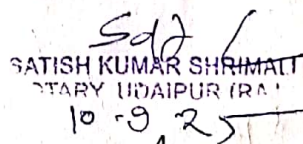 Sd/-
SATISH KUMAR SHRIMALI
OTARY UDAIPUR (RA
10-9-25